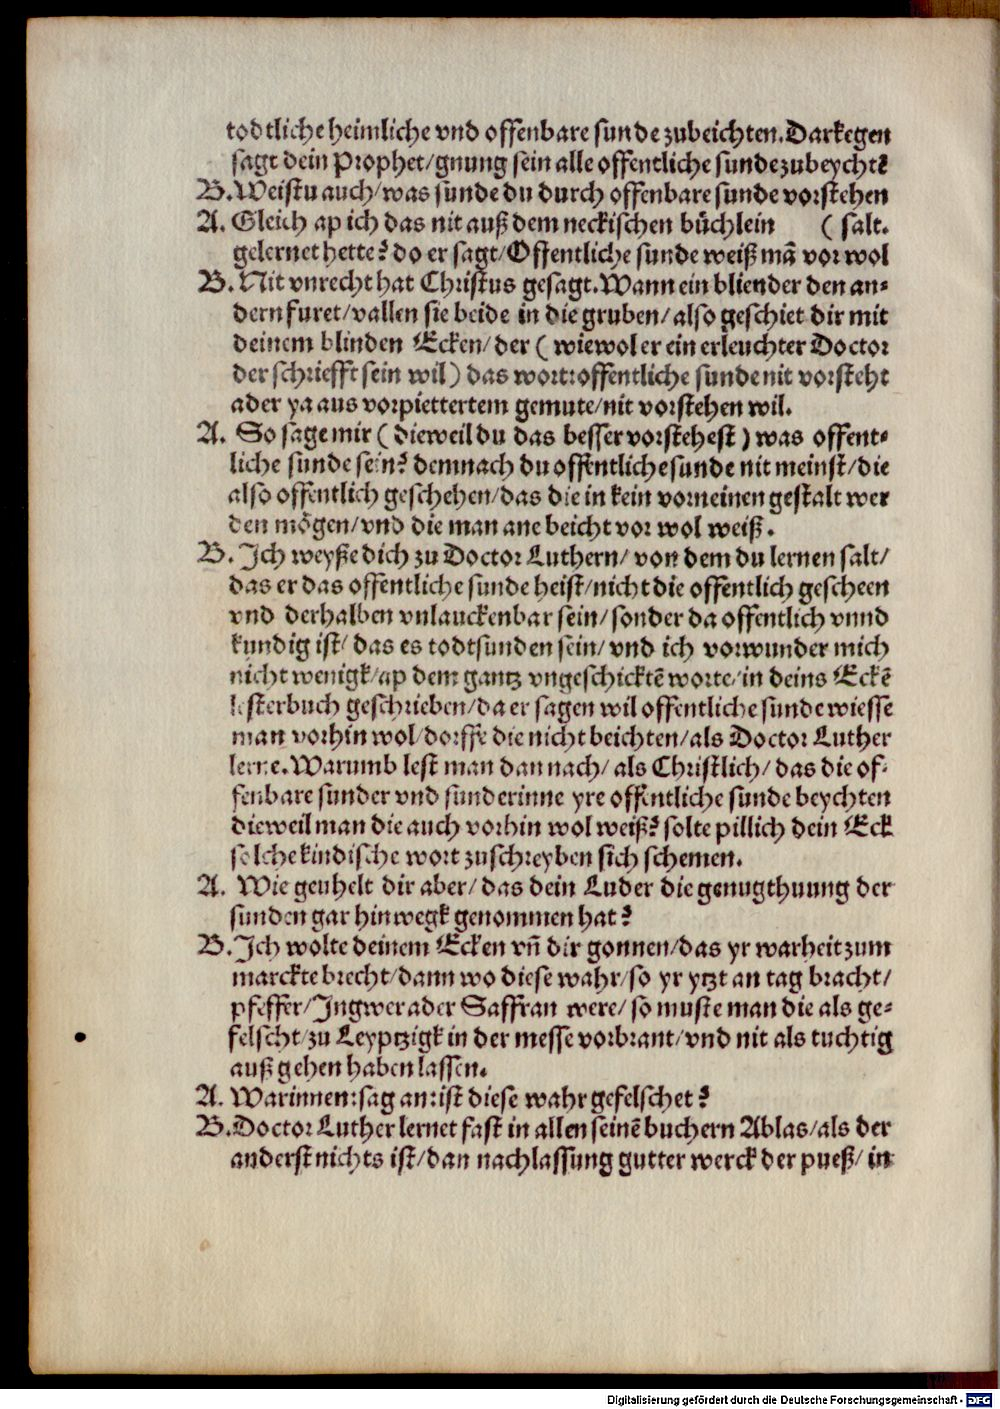 todtliche heimliche vnd offenbare sunde zubeichten. Darkegen
sagt dein Prophet/gnung sein alle offentliche sunde zubeychtē
B. Weistu auch/was sunde du durch offenbare sunde vorstehen
A. Gleich ap ich das nit auß dem neckischen bůchlein ( salt.
gelernet hette? do er sagt/Offentliche sunde weiß mā vor wol
B. Nit vnrecht hat Christus gesagt. Wann ein bliender den an-
dern furet/vallen sie beide in die gruben/also geschiet dir mit
deinem blinden Ecken/der ( wiewol er ein erleuchter Doctor
der schriefft sein wil) das wort: offentliche sunde nit vorsteht
ader ya aus vorpiettertem gemute/nit vorstehen wil.
A. So sage mir ( dieweil du das besser vorstehest ) was offent-
liche sunde sein? demnach du offentliche sunde nit meinst/die
also offentlich geschehen/das die in kein vorneinen gestalt wer
den mögen/vnd die man ane beicht vor wol weiß.
B. Ich weyße dich zu Doctor Luthern/ von dem du lernen salt/
das er das offentliche sunde heist/nicht die offentlich gescheen
vnd derhalben vnlauckenbar sein/sonder da offentlich vnnd
kundig ist/ das es todtsunden sein/ vnd ich vorwunder mich
nicht wenigk/ap dem gantz vngeschicktē worte/in deins Eckē
lesterbuch geschrieben/da er sagen wil offentliche sunde wiesse
man vorhin wol/dorffe die nicht beichten/als Doctor Luther
lerne. Warumb lest man dan nach/ als Christlich/ das die of-
fenbare sunder vnd sunderinne yre offentliche sunde beychten
dieweil man die auch vorhin wol weiß? solte pillich dein Eck
solche kindische wort zuschreyben sich schemen.
A. Wie gevhelt dir aber/ das dein Luder die genugthuung der
sunden gar hinwegk genommen hat?
B. Ich wolte deinem Ecken vñ dir gonnen/das yr warheit zum
marckte brecht/dann wo diese wahr/so yr ytzt an tag bracht/
pfeffer/Ingwer ader Saffran were/ so muste man die als ge-
felscht/zu Leyptzigk in der messe vorbrant/vnd nit als tuchtig
auß gehen haben lassen.
A. Warinnen: sag an: ist diese wahr gefelschet?
B. Doctor Luther lernet fast in allen seinē buchern Ablas/als der
anderst nichts ist/dan nachlassung gutter werck der pueß/ in
Digitalisierung gefördert durch die Deutsche Forschungsgemeinschaft - DFG